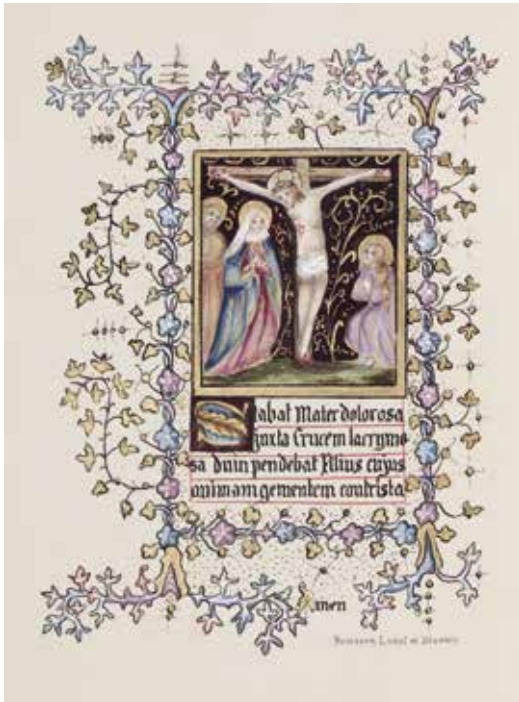 Stabat Mater dolorosa
juxta Crucem lacrymo
sa dum pendebat Filius cujus
animam gementem contrista
Amen